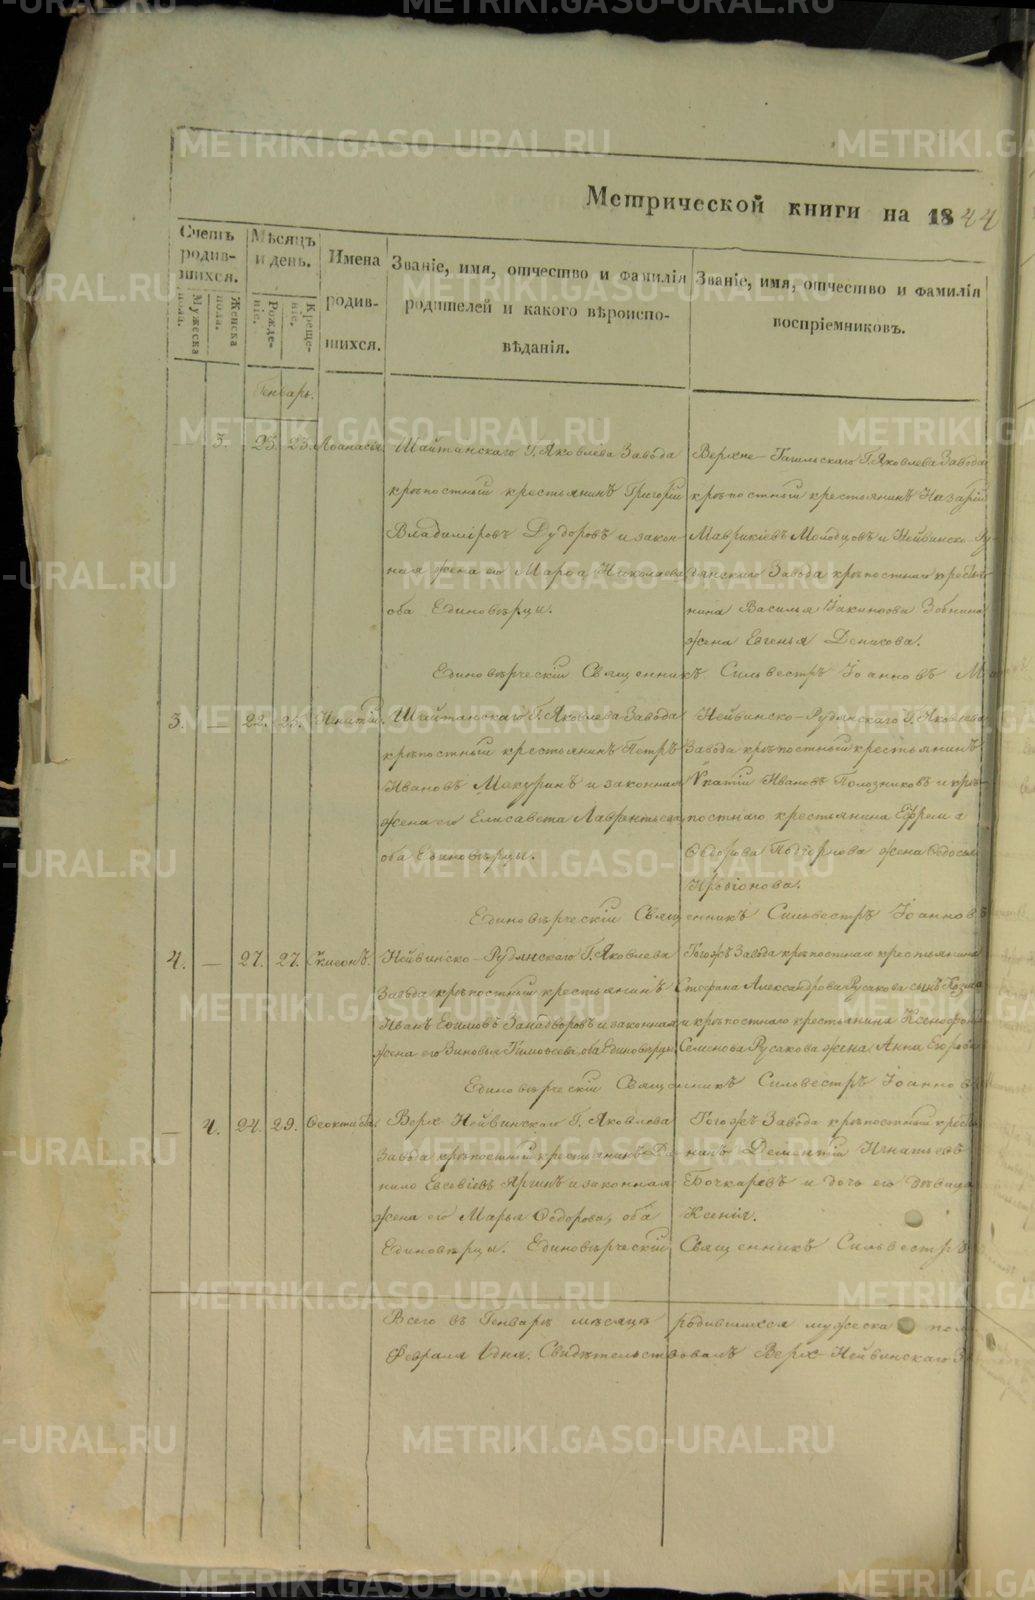 Метрической книги на 1844
Счетъ родив-шихся.
Мужеска пола.
Женска пола.
Мѣсяцъ и день.
Рожде-ніе.
Креще-ніе.
Имена родив-шихся.
Званіе, имя, отчество и фамилія родителей и какого вѣроиспо-вѣданія.
Званіе, имя, отчество и фамилія воспріемниковъ.
Генварь.
3. 23. 23. Аѳанасія.
Шайтанскаго Г. Яковлева Завода
крѣпостный крестьянинъ Григорій
Владиміровъ Дудоровъ и закон-
ная жена его Марѳа Николаева
оба Единовѣрцы.
Верхне-Тагильскаго Г. Яковлева Завода
крѣпостный крестьянинъ Назарій
Маврикіевъ Молодцовъ и Нейвинско-Ру-
дянскаго Завода крѣпостнаго кресть
нина Василья Іакинѳова Зобнина
жена Евгенья Денисова.
Единовѣрческій Священникъ Сильвестръ Іоанновъ
3. — 22. 25. Игнатій.
Шайтанскаго Г. Яковлева Завода
крѣпостный крестьянинъ Петръ
Ивановъ Макуринъ и законная
жена его Елисавета Лаврентьева,
оба Единовѣрцы.
Нейвинско-Рудянскаго Г. Яковлева
Завода крѣпостный крестьянинъ
Ипатій Ивановъ Полозниковъ и крѣ-
постнаго крестьянина Ефрема
Ѳедорова Подгорнова жена Ѳедосья
Иродіонова.
Единовѣрческій Священникъ Сильвестръ Іоанновъ
4. — 27. 27. Симеонъ.
Нейвинско-Рудянскаго Г. Яковлева
Завода крѣпостный крестьянинъ
Иванъ Ефимовъ Занадворовъ и законная
жена его Зиновья Тимоѳеева, оба Единовѣрцы.
Тогожъ Завода крѣпостнаго крестьянина
Стефана Александрова Русакова сынъ Козма
и крѣпостнаго крестьянина Ксенофон
Семенова Русакова жена Анна Егорова
Единовѣрческій Священникъ Сильвестръ Іоанновъ
— 4. 24. 29. Ѳеоктиста.
Верх Нейвинскаго Г. Яковлева
Завода крѣпостный крестьянинъ Да-
нило Евсевіевъ Яринъ и законная
жена его Марья Ѳедорова, оба
Единовѣрцы. Единовѣрческій Священникъ Сильвестръ
Тогожъ Завода крѣпостный кресть
нинъ Дементій Игнатьевъ
Бочкаревъ и дочь его дѣвица
Ксенія.
Всего въ Генварѣ мѣсяцѣ родившихся мужеска пол
Февраля 1 дня. Свидѣтельствовалъ Верх-Нейвинскаго З
METRIKI.GASO-URAL.RU